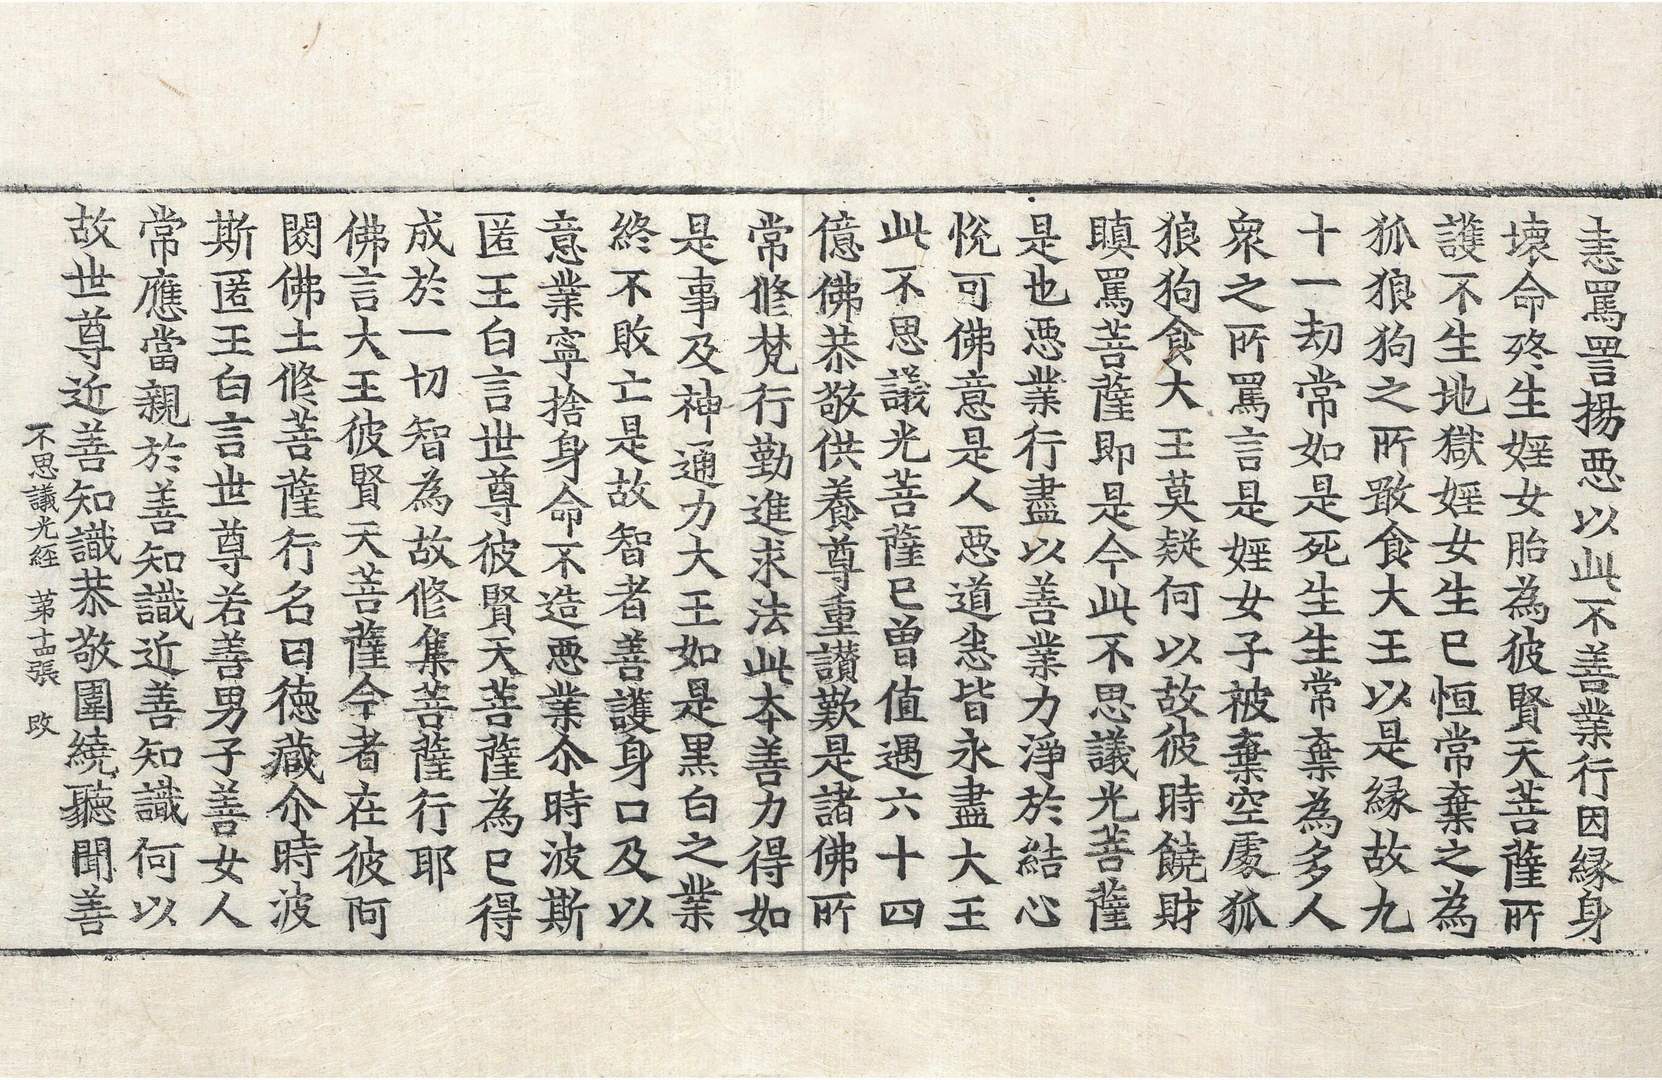 恚罵詈揚惡以此不善業行因縁身
壞命終生婬女胎為彼賢天菩薩所
護不生地獄婬女生已恒常棄之為
狐狼狗之所噉食大王以是縁故九
十一劫常如是死生生常棄為多人
衆之所罵言是婬女子被棄空處狐
狼狗食大王莫疑何以故彼時饒財
瞋罵菩薩即是今此不思議光菩薩
是也惡業行盡以善業力淨於結心
悅可佛意是人惡道恚皆永盡大王
此不思議光菩薩已曾值遇六十四
億佛恭敬供養尊重讃歎是諸佛所
常修梵行勤進求法此本善力得如
是事及神通力大王如是黑白之業
終不敗亡是故智者善護身口及以
意業寧捨身命不造惡業尒時波斯
匿王白言世尊彼賢天菩薩為已得
成於一切智為故修集菩薩行耶
佛言大王彼賢天菩薩今者在彼阿
閦佛土修菩薩行名曰德藏尒時波
斯匿王白言世尊若善男子善女人
常應當親於善知識近善知識何以
故世尊近善知識恭敬圍繞聽聞善
不思議光經 第十四張 敢